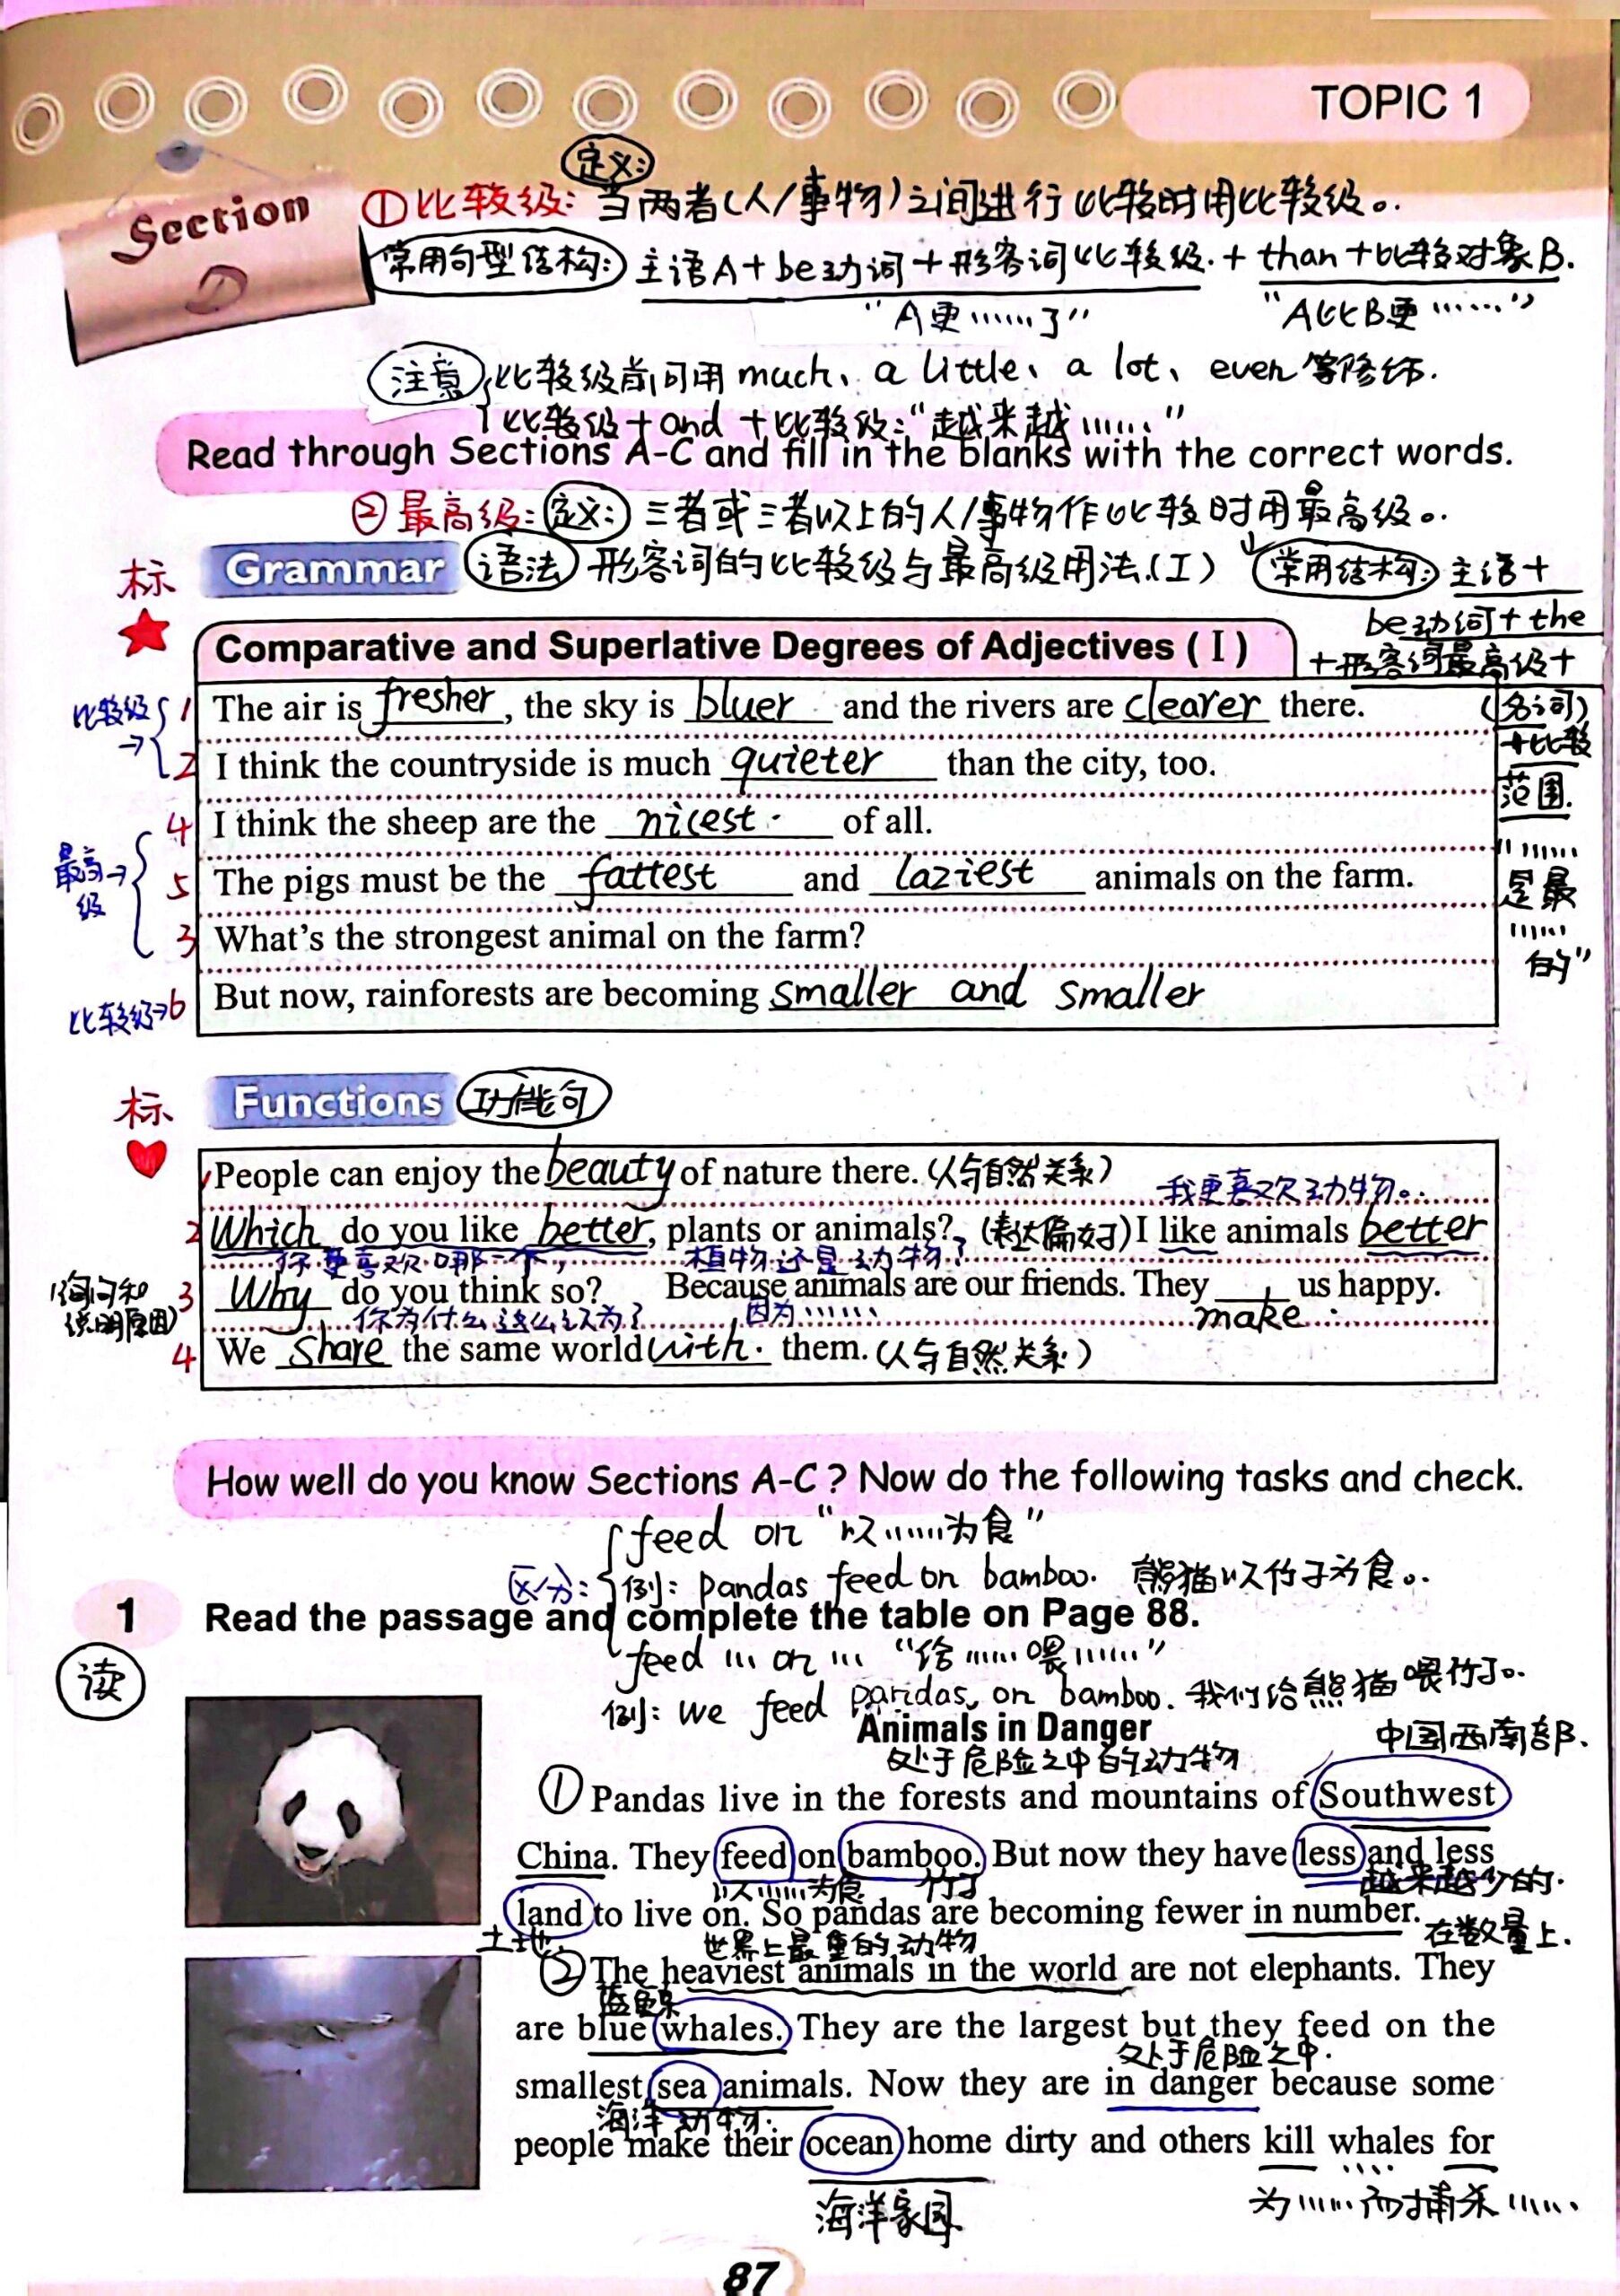 TOPIC 1
Section D
定义:
①比较级: 当两者(人/事物)之间进行比较时用比较级。
常用句型结构: 主语A+be动词+形容词比较级.+than+比较对象B.
"A更……了" "A比B更……"
注意 比较级前可用much、a little、a lot、even等修饰.
比较级+and+比较级:"越来越……"
Read through Sections A-C and fill in the blanks with the correct words.
②最高级: 定义: 三者或三者以上的人/事物作比较时用最高级。
标 Grammar 语法 形容词的比较级与最高级用法.(Ⅰ) 常用结构: 主语+
be动词+the
Comparative and Superlative Degrees of Adjectives (Ⅰ) +形容词最高级+
比较级→ 1 The air is fresher, the sky is bluer and the rivers are clearer there. (名词)
+比较
2 I think the countryside is much quieter than the city, too.
范围.
4 I think the sheep are the nicest of all.
"……
最高级→ 5 The pigs must be the fattest and laziest animals on the farm. 是最
……
3 What's the strongest animal on the farm?
的"
比较级→6 But now, rainforests are becoming smaller and smaller
标 Functions 功能句
1 People can enjoy the beauty of nature there. (人与自然关系) 我更喜欢动物。
2 Which do you like better, plants or animals? (表达偏好) I like animals better
你更喜欢哪一个, 植物还是动物?
(询问和说明原因) 3 Why do you think so? Because animals are our friends. They make us happy.
你为什么这么认为? 因为……
4 We share the same world with. them. (人与自然关系)
How well do you know Sections A-C? Now do the following tasks and check.
feed on "以……为食"
区分: 例: pandas feed on bamboo. 熊猫以竹子为食。
1 Read the passage and complete the table on Page 88.
读 feed … on … "给……喂……"
例: we feed pandas on bamboo. 我们给熊猫喂竹子。
Animals in Danger
处于危险之中的动物 中国西南部.
① Pandas live in the forests and mountains of Southwest
China. They feed on bamboo. But now they have less and less
以……为食 竹子 越来越少的.
land to live on. So pandas are becoming fewer in number.
土地 世界上最重的动物 在数量上.
② The heaviest animals in the world are not elephants. They
蓝鲸
are blue whales. They are the largest but they feed on the
处于危险之中.
smallest sea animals. Now they are in danger because some
海洋动物.
people make their ocean home dirty and others kill whales for
海洋家园. 为……而捕杀……
87